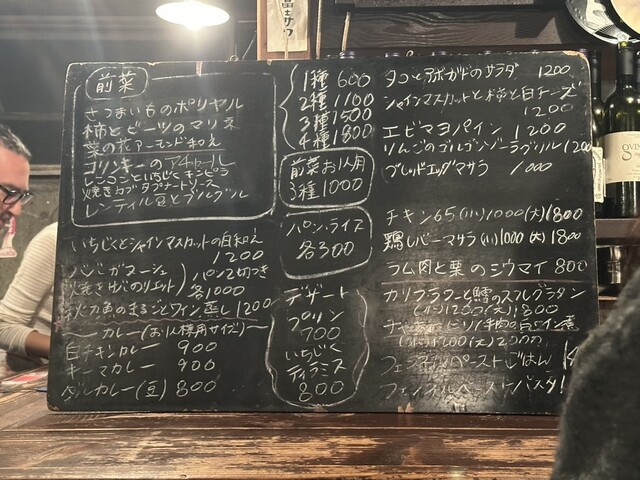 前菜
さつまいものポリヤル
柿とビーツのマリネ
菜の花アーモンド和え
コリンキーのアチャール
れんこんといちじくキンピラ
焼きカブタプナードソース
レンティル豆とブルグル
1種 600
2種 1100
3種 1500
4種 1800
前菜お1人用
3種 1000
パン・ライス
各300
いちじくとシャインマスカットの白和え
1200
パンで2切つき
各1000
まるごとワイン蒸し 1200
〜カレー(お1人様用サイズ)〜
白チキンカレー 900
キーマカレー 900
ダルカレー(豆) 800
デザート
プリン
700
いちじく
ティラミス
800
タコとアボカドのサラダ 1200
シャインマスカットと柿と白チーズ
1200
エビマヨパイン 1200
りんごのゴルゴンゾーラグリル 1200
ブレッドエッグマサラ 1000
チキン65 (小)1000 (大)1800
鶏レバーマサラ (小)1000 (大)1800
ラム肉と栗のシウマイ 800
カリフラワーと鱈のスフレグラタン
(小)1200 (大)1800
ペーストごはん
ペーストパスタ